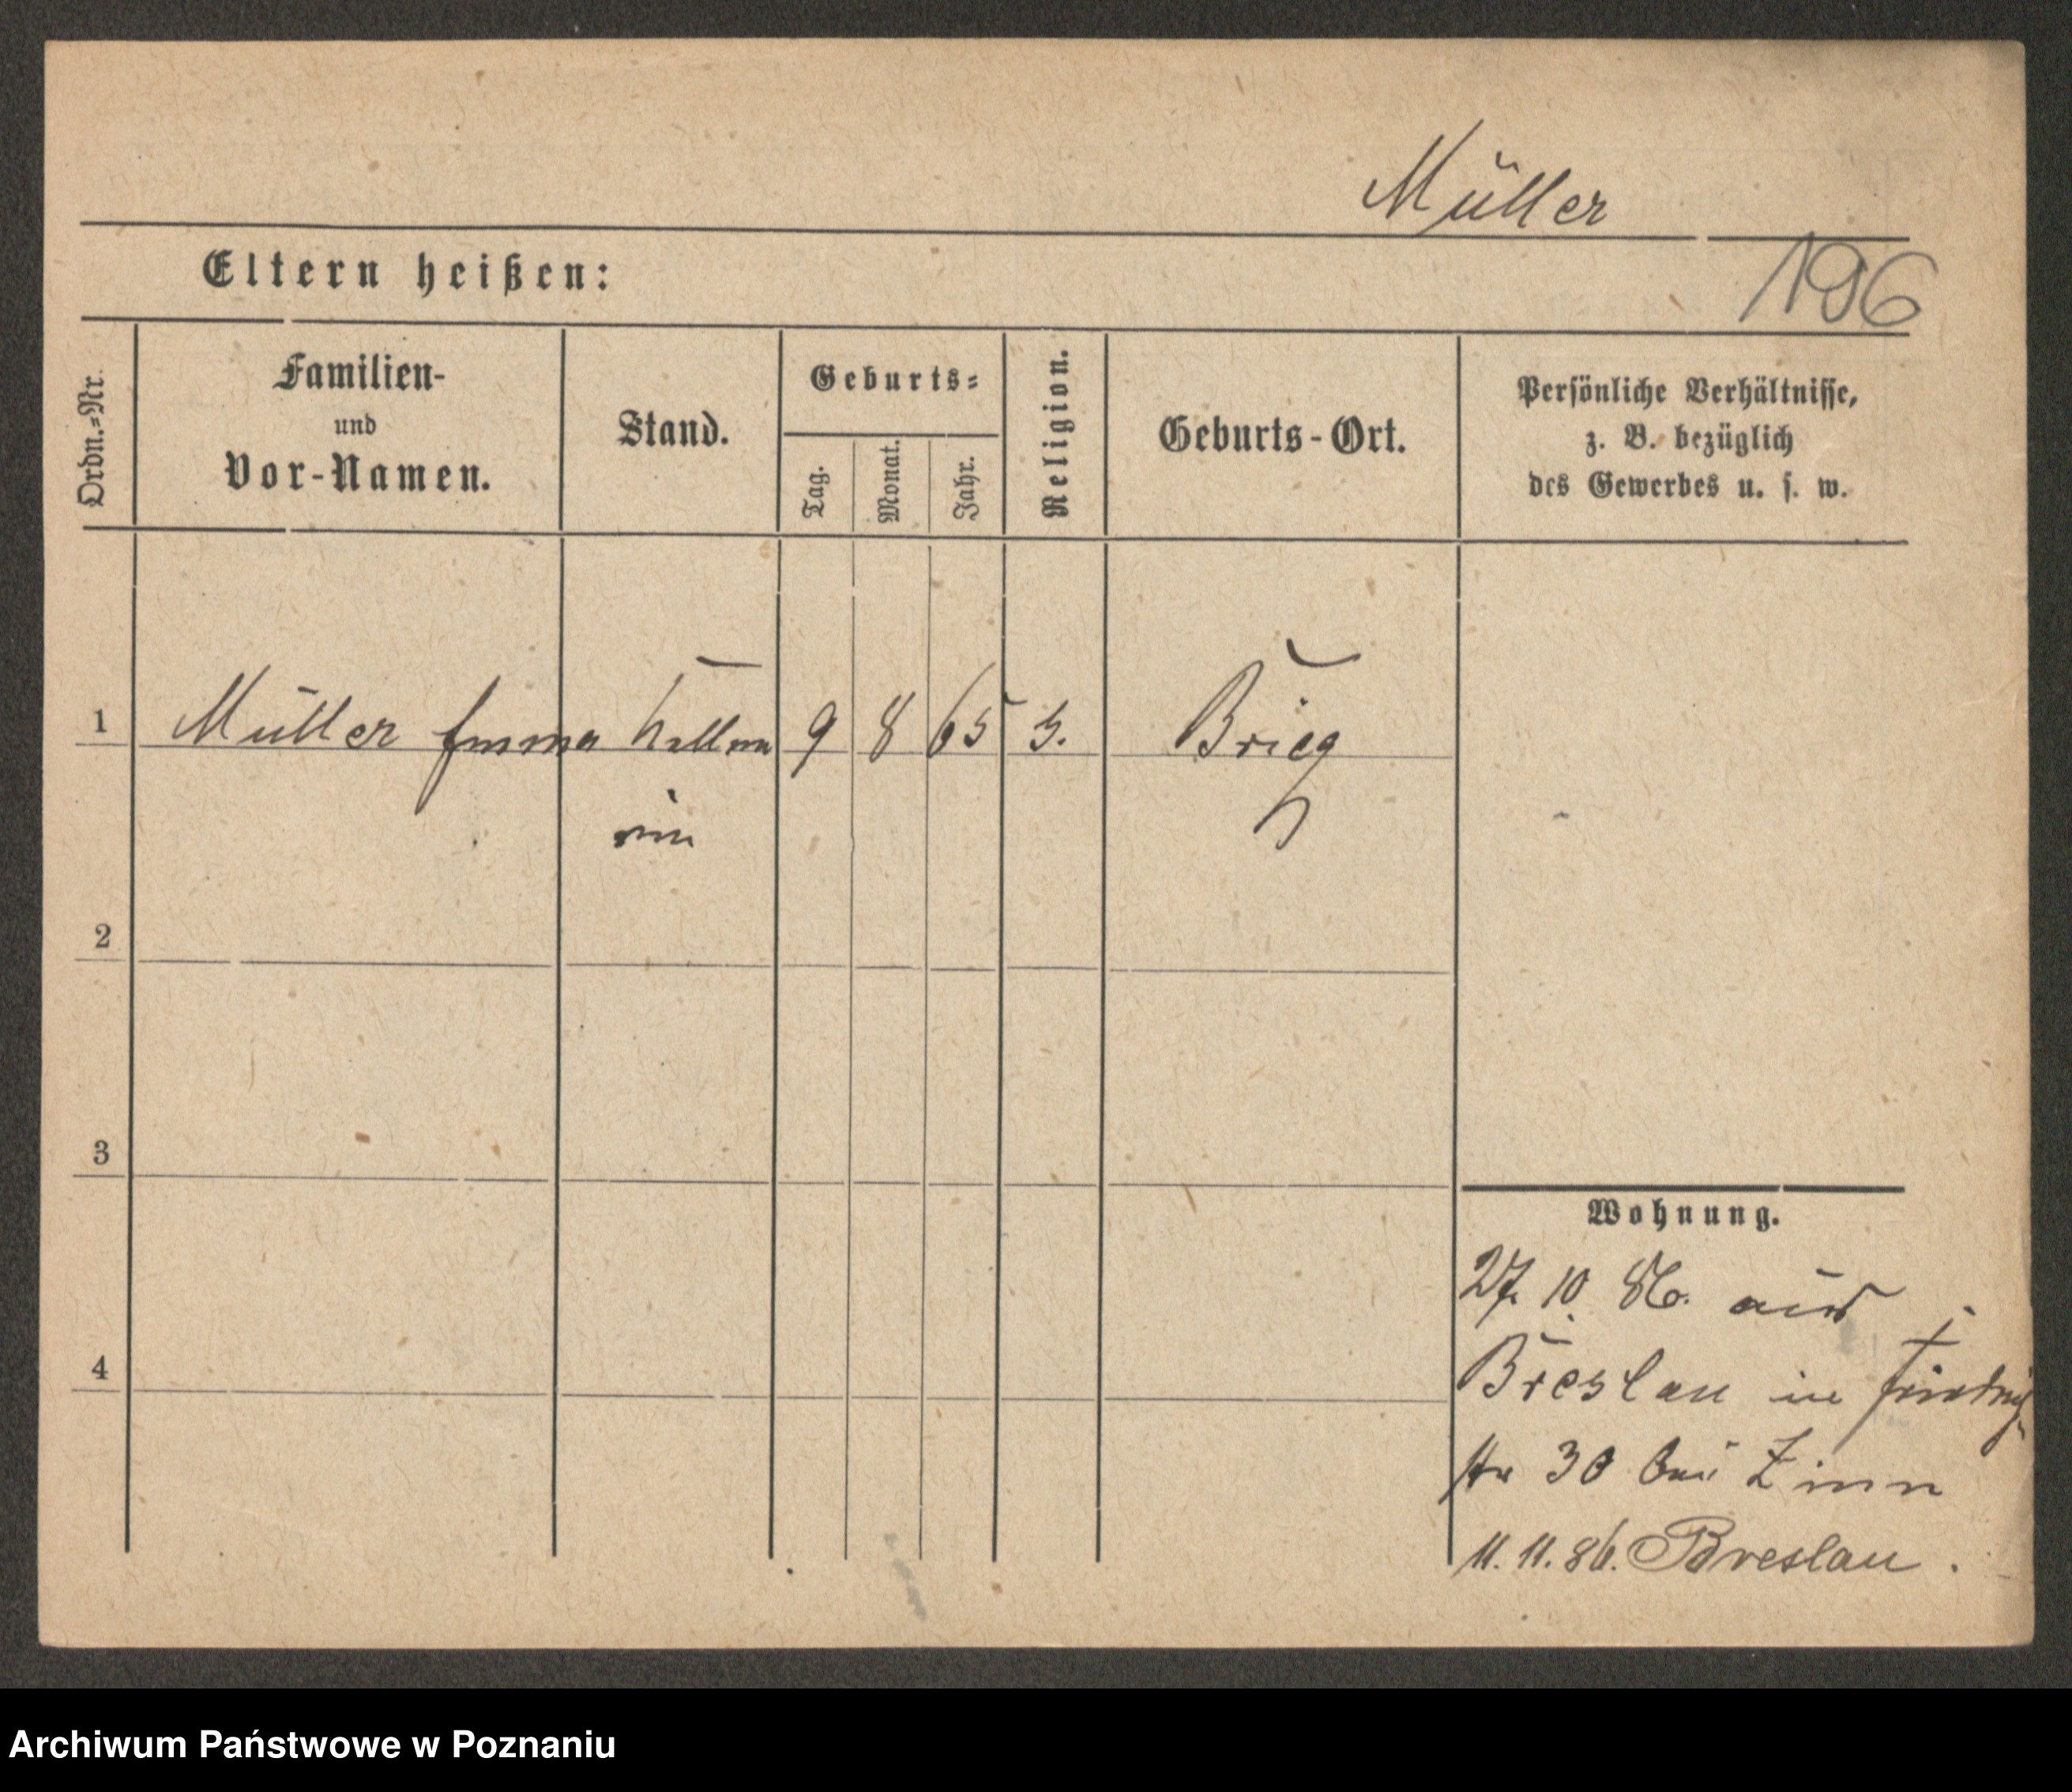 Müller
196
Eltern heißen:
Ordn.-Nr.
Familien-
und
Vor-Namen.
Stand.
Geburts-
Tag.
Monat.
Jahr.
Religion.
Geburts-Ort.
Persönliche Verhältnisse,
z. B. bezüglich
des Gewerbes u. s. w.
1 Müller Emma Kellne 9 8 65 Brieg
rin
2
3
4
Wohnung.
27. 10. 86. aus
Breslau in Friedrich
str 30 bei Zinn
11. 11. 86. Breslau.
Archiwum Państwowe w Poznaniu